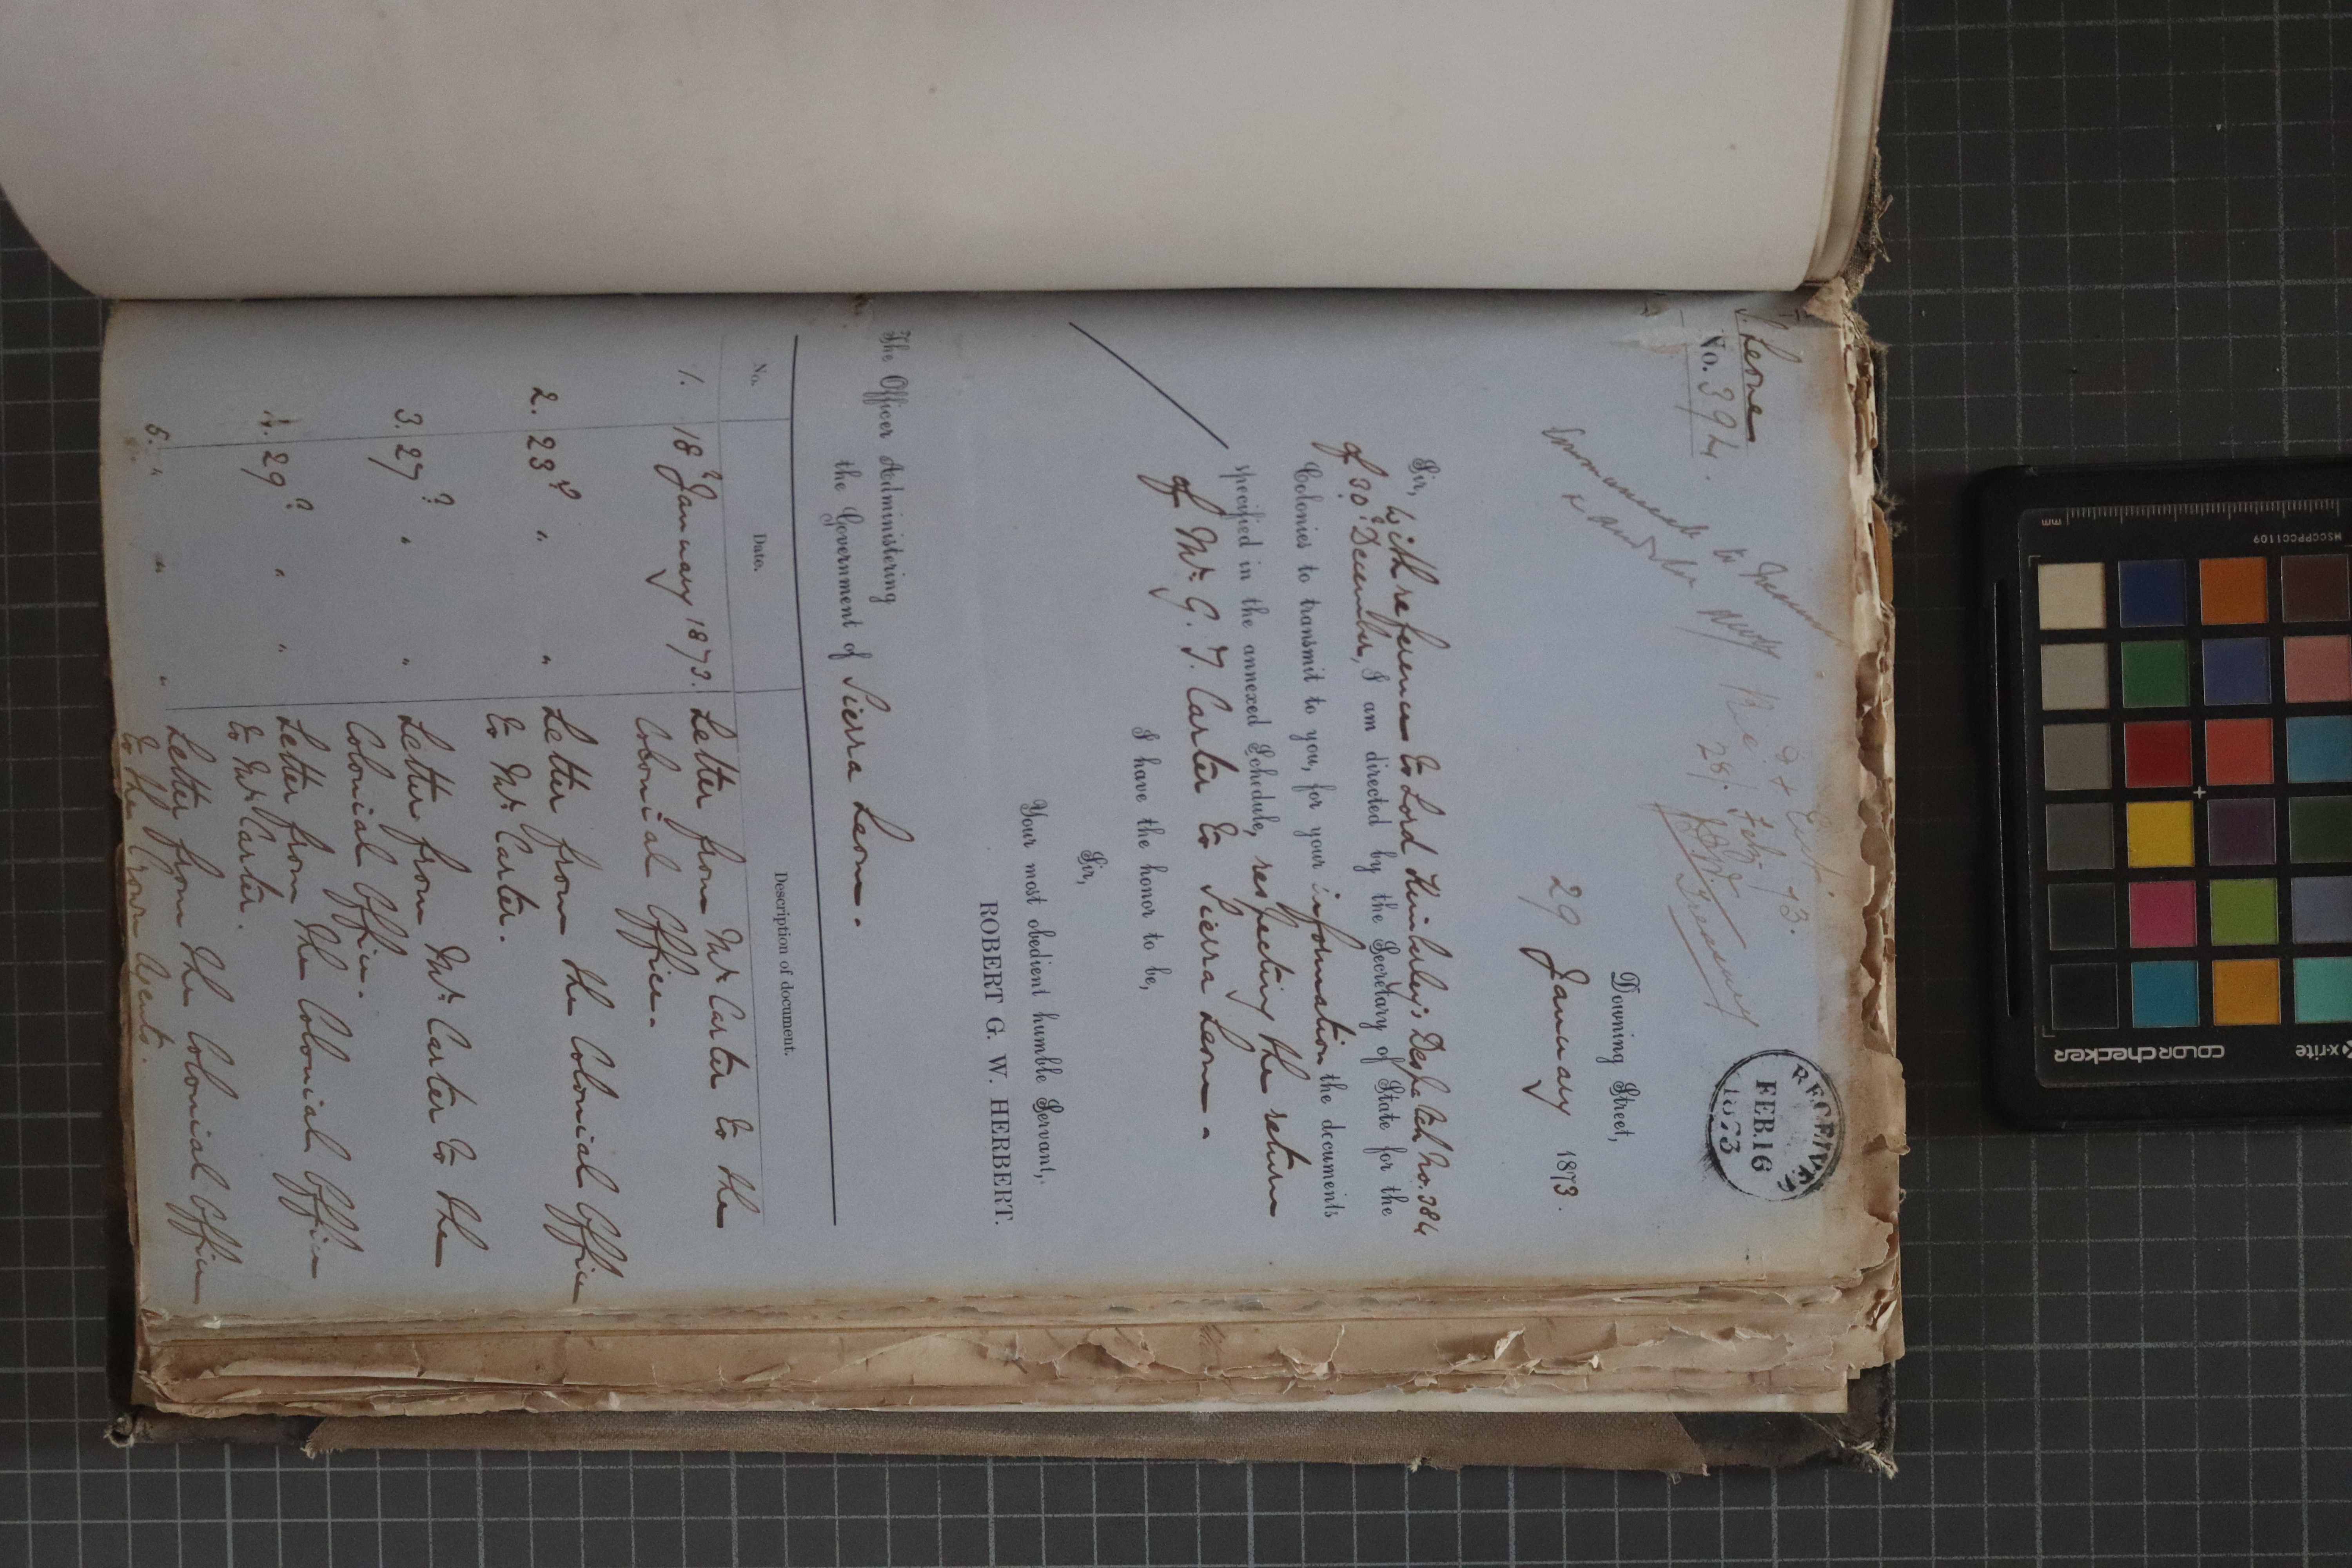 S. Leone
No. 394.
RECEIVED
FEB. 16
1873
28/ Feby 73.
Treasury
Downing Street,
29 January 1873.
Sir, With reference to Lord Kimberley's Despatch No. 384
of 30th December, I am directed by the Secretary of State for the
Colonies to transmit to you, for your information the documents
specified in the annexed Schedule, respecting the return
of Mr. G. T. Carter to Sierra Leone.
I have the honor to be,
Sir,
Your most obedient humble Servant,
ROBERT G. W. HERBERT.
The Officer Administering
the Government of Sierra Leone.
No. Date. Description of document.
1. 18th January 1873. Letter from Mr. Carter to the
Colonial Office.
2. 23rd " " Letter from the Colonial Office
to Mr. Carter.
3. 27th " " Letter from Mr. Carter to the
Colonial Office.
4. 29th " " Letter from the Colonial Office
to Mr. Carter.
5. " " " Letter from the Colonial Office
to the Crown Agents.
mm
MSCCPPCC1109
x-rite
colorchecker